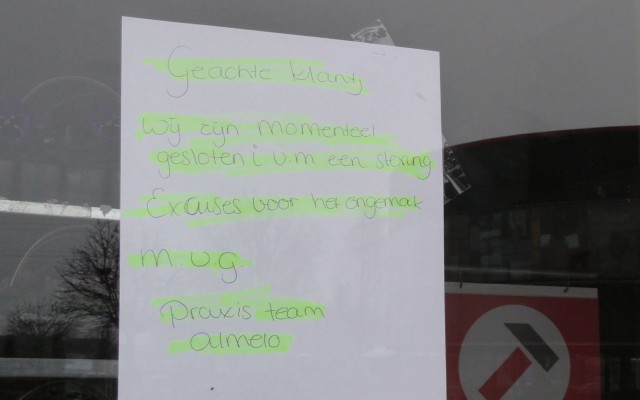 Geachte klant,
Wij zijn momenteel
gesloten i.v.m een storing
Excuses voor het ongemak
m.v.g
Praxis team
almelo